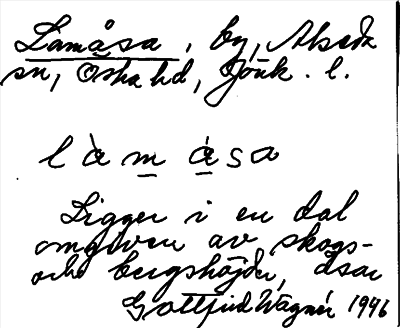 Lamåsa, by, Alseda
sn, Östra hd, Jönk. l.
l à m å s a
Ligger i en dal
omgiven av skogs-
och bergshöjder, åsar
Gottfrid Wagnér 1946